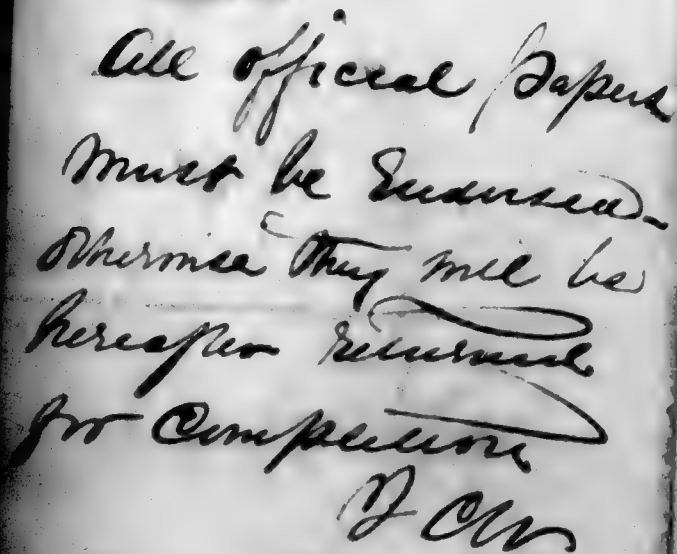 All official Papers
must be Endorsed -
otherwise they will be
hereafter returned
for Completion